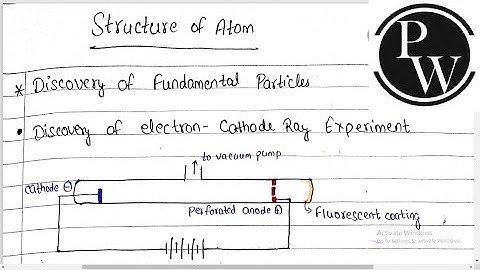 Structure of Atom
PW
* Discovery of Fundamental Particles
• Discovery of electron- Cathode Ray Experiment
to vacuum pump
Cathode ⊖
Perforated anode ⊕
Fluorescent coating
Activate Windows
Go to Settings to activate Windows.